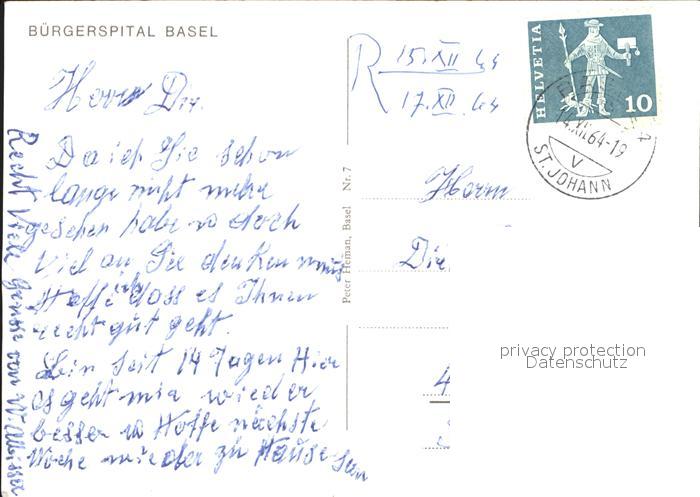 BÜRGERSPITAL BASEL
Herr Dir.
Da ich Sie schon
lange nicht mehr
gesehen habe so doch
viel an Sie denken muss
Hoffe ich dass es Ihnen
recht gut geht.
Bin seit 14 Tagen Hier
es geht mir wieder
besser so Hoffe nächste
Woche wieder zu Hause sein
Recht Viele Grüsse von
Peter Heman, Basel Nr. 7
R 15.XII 64
17.XII 64
HELVETIA
10
14.XII.64-19
V
ST. JOHANN
Herrn
Dir
4
privacy protection
Datenschutz